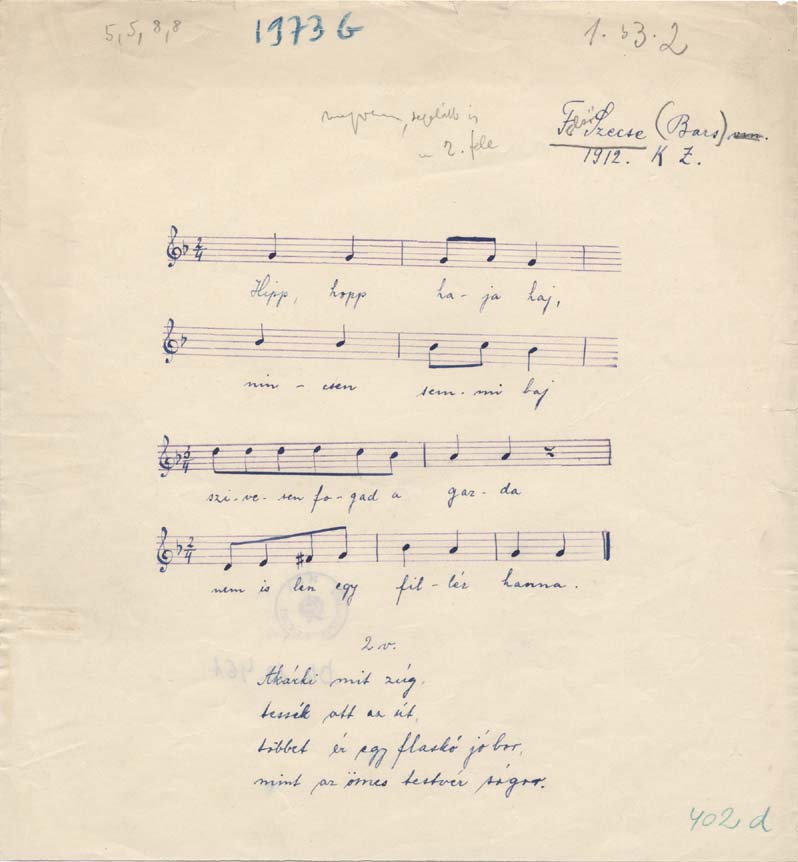 5, 5, 8, 8
1973 G
1. 53. 2
2. fele
Felső Szecse (Bars)
1912. K Z.
2/4
Hipp, hopp ha - ja haj,
nin - csen sem - mi baj
3/4
szi - ve - sen fo - gad a gaz - da
2/4
nem is len egy fil - lér hanna.
2 v.
Akárki mit zúg,
tessék ott az út,
többet ér egy flaskó jó bor,
mint az ömes testvér sógor.
402 d